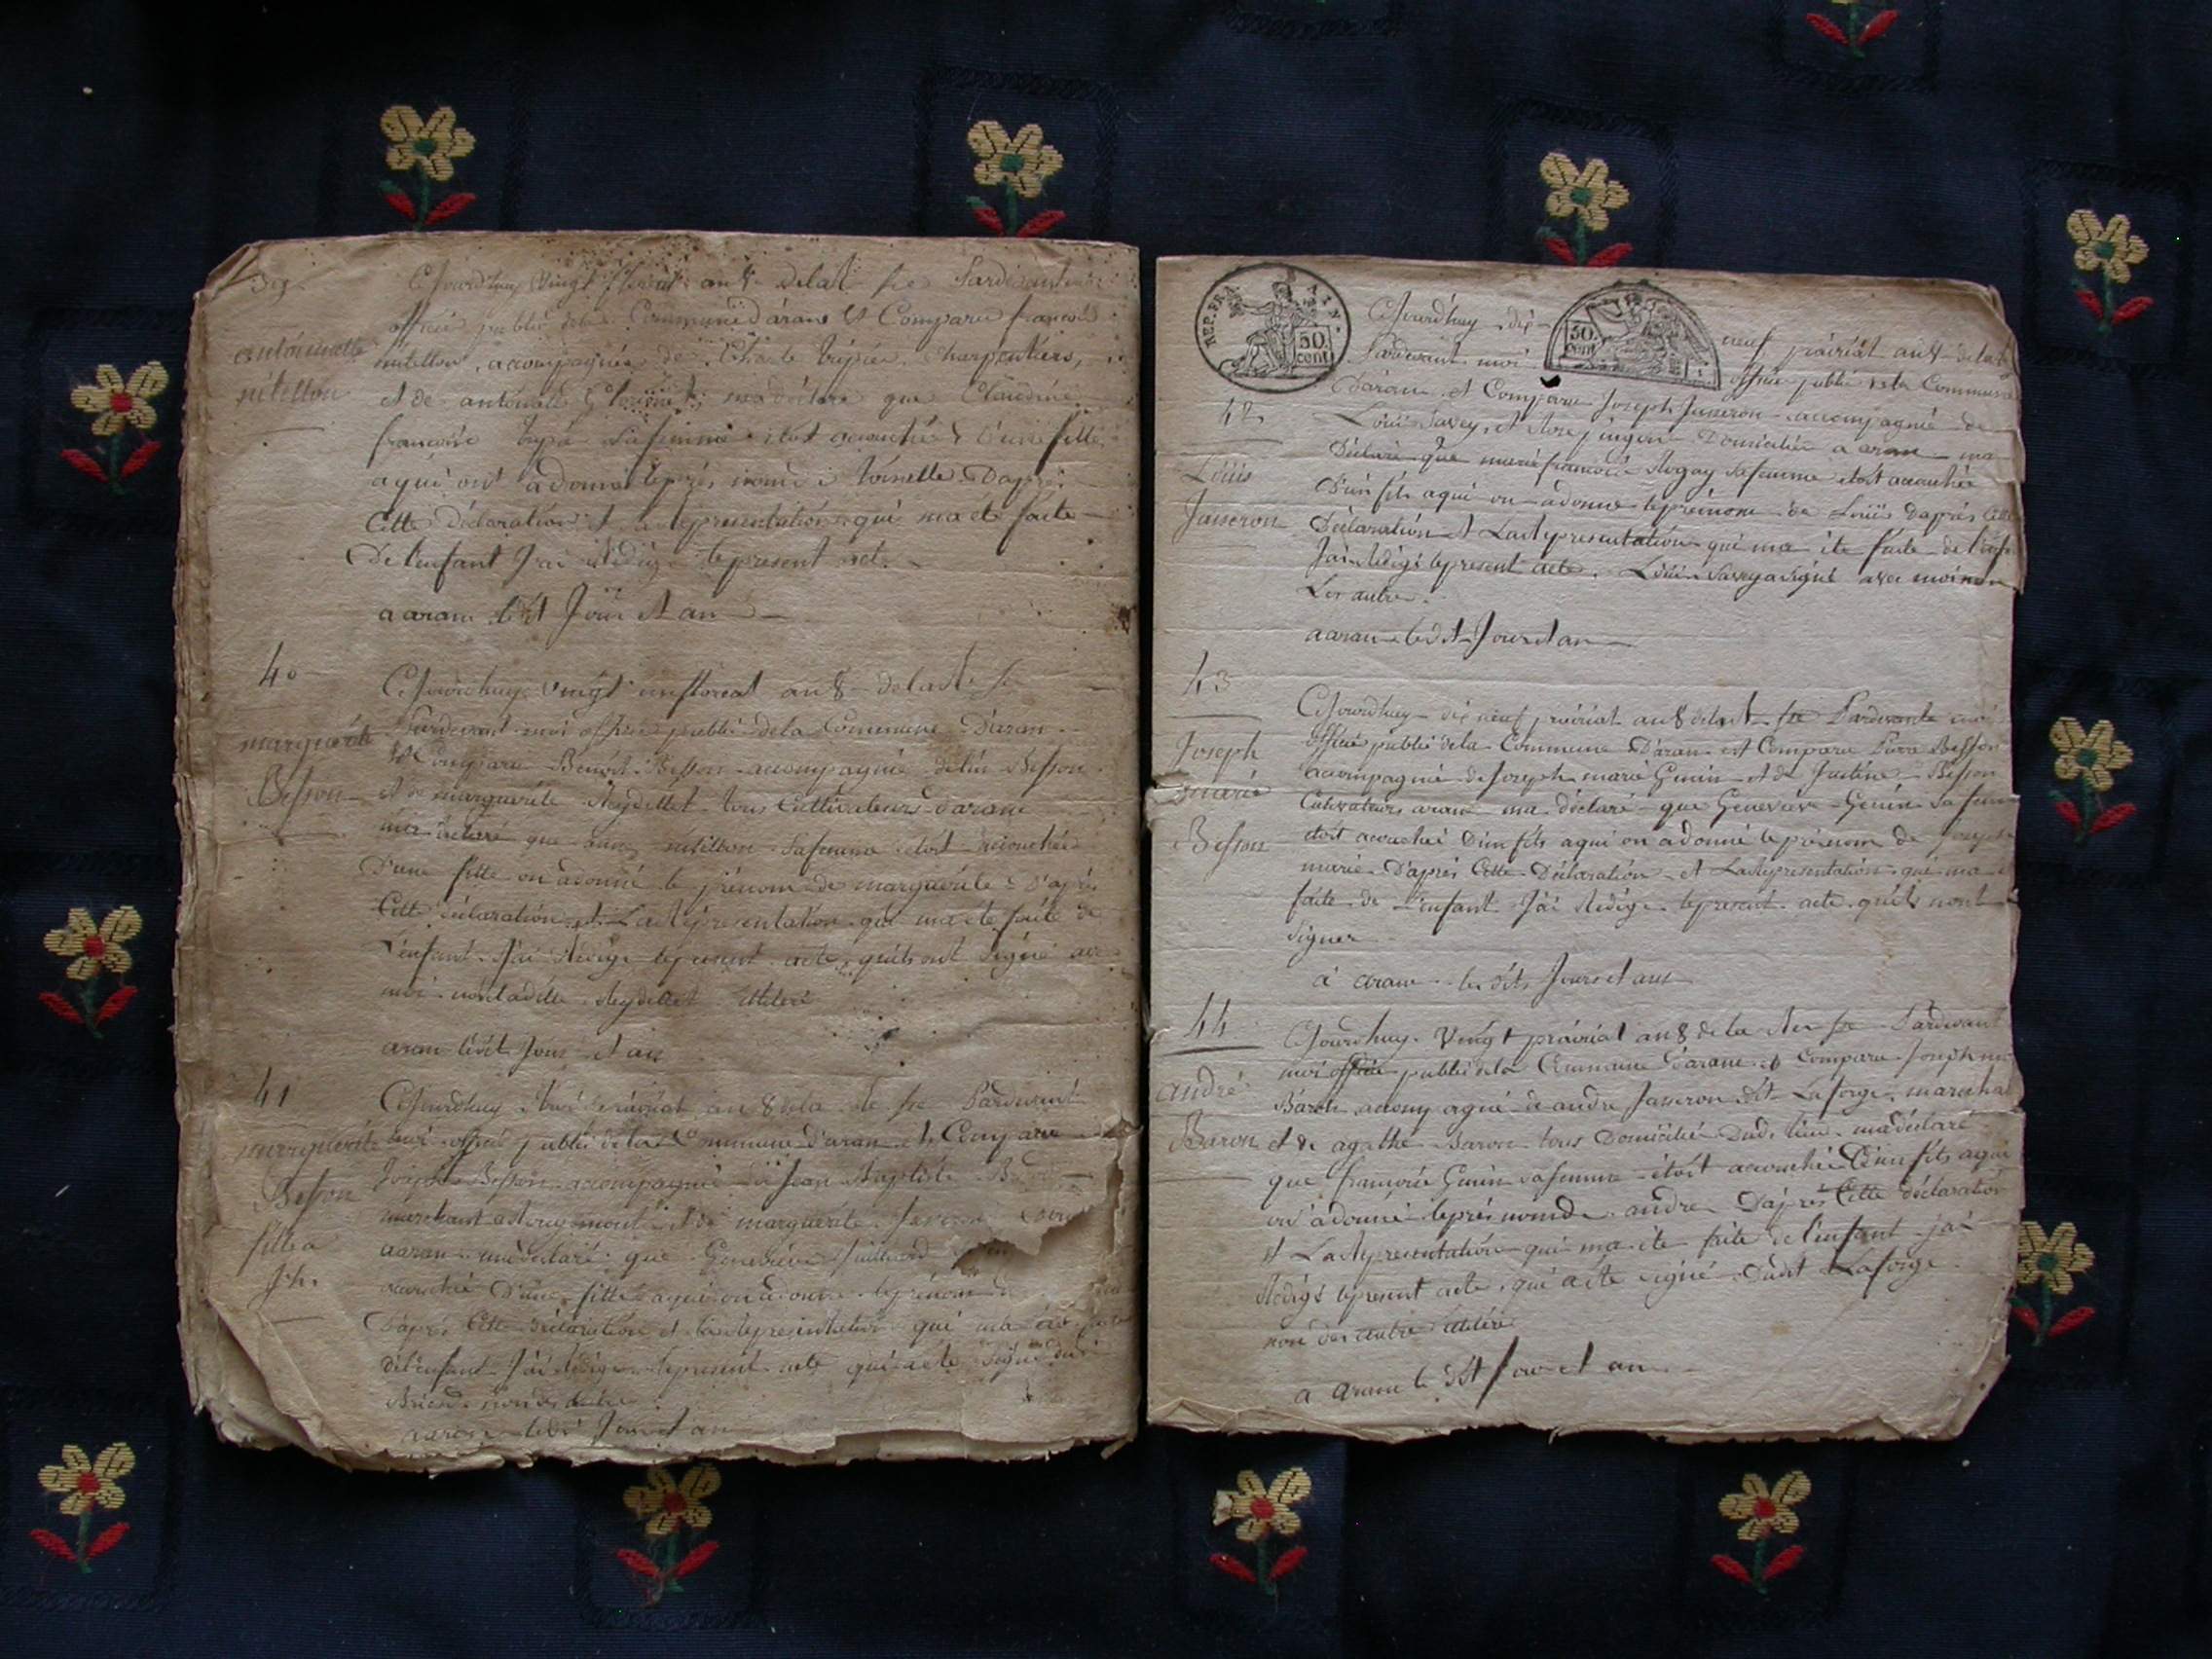 39
antoinette
nitellon
Cejourdhuy Vingt floreal an 8 delat fse Pardevant
officié publié dela Commune d'arane Est Comparu françois
nitellon accompagnée de Charle tripier charpentiers,
et de antoinette ma déclaré que Claudine
françoise sa femme étoit acouchée d'une fille
aqui ont adonné leprés nomé toinelle Dapré
Cette Déclaration et laReprésentation qui ma été faite
De l'enfant Jai Rédigé lepresent act.
a arane ledit Jour et an
40
marguerite
Besson
Cejourdhuy Vingt un floreal an 8 delaR fse
Pardevant moi officié publié dela Commune D'aran
Est Comparu Benoit Besson accompagnée Besson
et de marguerite Reydellet tous Cultivateurs d'arane
ma déclaré que nitellon safemme étoit acouchée
D'une fille on adonné le prénom de marguerite D'après
Cette déclaration et LaReprésentation qui ma été faite de
L'enfant J'ai Rédigé lepresent acte, quils ont Signé avec
moi non ladite Reydellet Illiteré
aran ledit Jour et an
41
marguerite
Besson
fille a
Jh.
Cejourdhuy prairial an 8 dela Re fse Pardevant
moi officié publié dela Commune d'aran et Comparu
Joseph Besson accompagnée de Jean Baptiste
marchant a Rougemont et de marguerite
aaran madéclaré que Geneviève
acouchée D'une fille aqui on adonné leprénom
D'après Cette déclaration et laReprésentation qui ma été faite
del'enfant J'ai Rédigé lepresent acte qui a été Signé dud
non des autre
aarane ledit Jour et an
REP. FRA. AIN.
50 cent
50 cent
42
Louis
Jasseron
Cejourdhuy dix neuf prairial an 8 delaR
Pardevant moi officié publié dela Commune
Darane et Comparu Joseph Jasseron accompagnée de
Louis Savey, et Rose pingon Domiciliée a aran ma
Déclaré que marie françoise Rogay safemme étoit acouchée
D'un fils aqui on adonné leprénom de Louis Daprés Cette
Déclaration et LaReprésentation qui ma été faite de l'enfa
Jai Rédigé lepresent acte. Louis Savey a signé avec moi non
Les autre.
aarane ledit Jour et an
43
Joseph
marie
Besson
Cejourdhuy dix neuf prairial an 8 delaR fse Pardevante moi
officié publié dela Commune D'aran est Comparu Besson
accompagnée de Joseph marie Genin et de Justine Besson
Cultivateurs arane ma déclaré que Geneviève Genin Sa fem
étoit acouchée D'un fils aqui on adonné le prénom de Joseph
marie D'après Cette Déclaration et LaReprésentation qui ma
faite de L'enfant J'ai Rédigé lepresent acte quils nont
Signer
à arane les dits Jours et ans
44
andré
Baron
Cejourdhuy Vingt prairial an 8 de la Rer fse Pardevant
moi officié publié dela Commune Darane et Comparu Joseph ma
Baron accompagné de andre Jasseron dit Laforge marechal
et de agathe Baron tous Domicilié Dud. lieu madéclaré
que françoise Genin safemme étoit acouchée D'un fils aqui
on adonné leprés nomde andre Daprès Cette déclaration
et LaReprésentation qui ma été faite de l'enfant jai
Rédigé lepresent acte qui a été signé Dudit Laforge
non des autre Illiteré
a arane le dit Jour et an